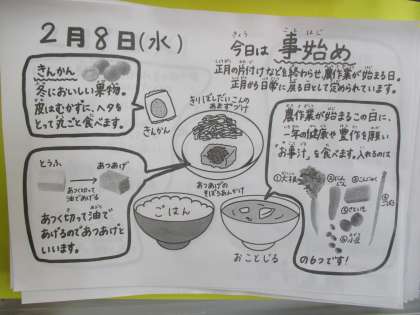 2月8日(水)
今日は 事始め
きょう
ことはじ
正月の片付けなどを終わらせ、農作業が始まる日。
正月から日常に戻る日として定められています。
きんかん
冬においしい果物。
皮はむかずに、ヘタを
とって丸ごと食べます。
きんかん
きりぼしだいこんの
あまずづけ
農作業が始まるこの日に、
一年の健康や豊作を願い
"お事汁"を食べます。入れるのは
①大根
②にんじん
③こんにゃく
⑤さといも
⑥小豆
の6つです!
とうふ
あつあげ
あつく切って
油であげる
あつく切って油で
あげるのであつあげと
いいます。
あつあげの
そぼろあんかけ
ごはん
おことじる